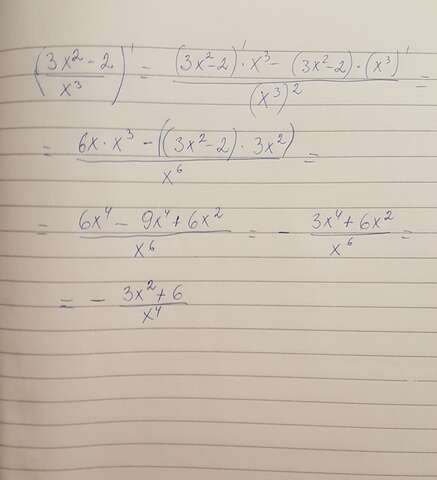 ((3x²-2)/x³)' = ((3x²-2)'·x³ - (3x²-2)·(x³)')/(x³)² =
= (6x·x³ - ((3x²-2)·3x²))/x⁶ =
= (6x⁴ - 9x⁴ + 6x²)/x⁶ = - (3x⁴ + 6x²)/x⁶ =
= - (3x² + 6)/x⁴